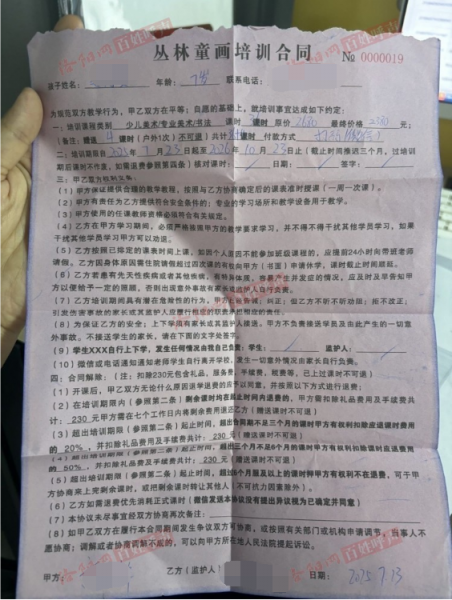 丛林童画培训合同
№ 0000019
孩子姓名：
年龄：7岁
联系电话：
为规范双方教学行为，甲乙双方在平等；自愿的基础上，就培训事宜达成如下约定：
一：培训课程类别 少儿美术/专业美术/书法 课时 原价 2680 最终价格 元；
（备注：赠送 4 课时（户外1次）不可退）共计 课时 付款方式
二：培训期限自 2025年7月23日起至2026年10月23日止（截止时间推迟三个月，过培训
期后课时不作废，如需退费参照第四条）核对课时： 日期： 签字：
三：甲乙双方权利义务：
（1）甲方保证提供合理的教学教程，按照与乙方协商确定后的课表准时授课（一周一次课）。
（2）甲方有责任为乙方提供符合安全条件的；专业的学习场所和教学设备用于教学。
（3）甲方使用的任课教师资格必须符合有关规定。
（4）乙方在甲方学习期间，必须严格按照甲方的教学要求学习，并不得干扰其他学员学习，如果
干扰其他学员学习甲方可以劝退。
（5）乙方按照已排定的课表时间上课，如因个人原因不能参加班级课程的，应提前24小时向带班老师
请假。乙方因身体原因需住院请假超过四次课的有权向甲方（书面）申请休学，课时截止时间顺延。
（6）乙方若患有先天性疾病或者其他疾病，有特异体质，容易产生并发症的情况，应及时及早告知甲
方以便给予一定的照顾，否则出现意外事故家长或监护人自行负责。
（7）乙方培训期间具有潜在危险性的行为，甲方应予告诫；纠正；但乙方不听不听劝阻；拒不改正；
引发伤害事故的家长或其监护人应履行相应的职责承担相应的责任。
（8）为保证乙方的安全；上下学需有家长或其监护人接送。甲方不负责接送学员及由此产生的一切意
外事故。不接送学生的家长，请在下面的文字处签字。
（9）学生XXX自行上下学，发生任何情况由我自己负责：学生： 监护人：
（10）微信或电话通知通知老师学生自行离开学校，发生一切意外情况由家长自行负责。
四：合同解除：（注：扣除230元包含礼品，服务费，手续费，税费等，已上过课时不可退）
（1）开课后，甲乙双方无论什么原因退学退费的应予以同意，并按照以下方式进行退费：
（2）在培训期限内（参照第二条）剩余课时均在起止时间内退费的，甲方需扣除礼品费用及手续费共
计：230元甲方需在七个工作日内将剩余费用退还乙方（赠送课时不可退）
（3）超出培训期限（参照第二条）起止时间，超出合同期不足三个月的课时甲方有权利扣除应退课时费用
的 20%，并扣除礼品费用及手续费共计：230元（赠送课时不可退）
（4）超出培训期限（参照第二条）起止时间，超出三个月不足6个月的课时甲方有权利扣除课时应退费用
的 50%，并扣除礼品费用及手续费共计：230元（赠送课时不可退）
（5）超出培训期限（参照第二条）起止时间，超出6个月服及以上的课时钾甲方有权利不在退费，可于甲
方协商来上完剩余课时，或把剩余课时转让其他人（不可抗力因素除外）
（6）乙方如需退费优先消耗正式课时（微信发送本协议没有提出异议视为已确定并同意）
（7）本协议未尽事宜经双方协商再次备注：
（8）如甲乙双方在履行本合同期间发生争议双方可协商，或按照有关部门或机构申请调节，当事人不
愿协商；调解或者协商调解不成的，可以向甲方所在地人民法院提起诉讼。
甲方：
乙方（监护人）
日期：2025.7.13